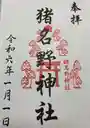 奉拝
猪名野神社
令和六年一月一日